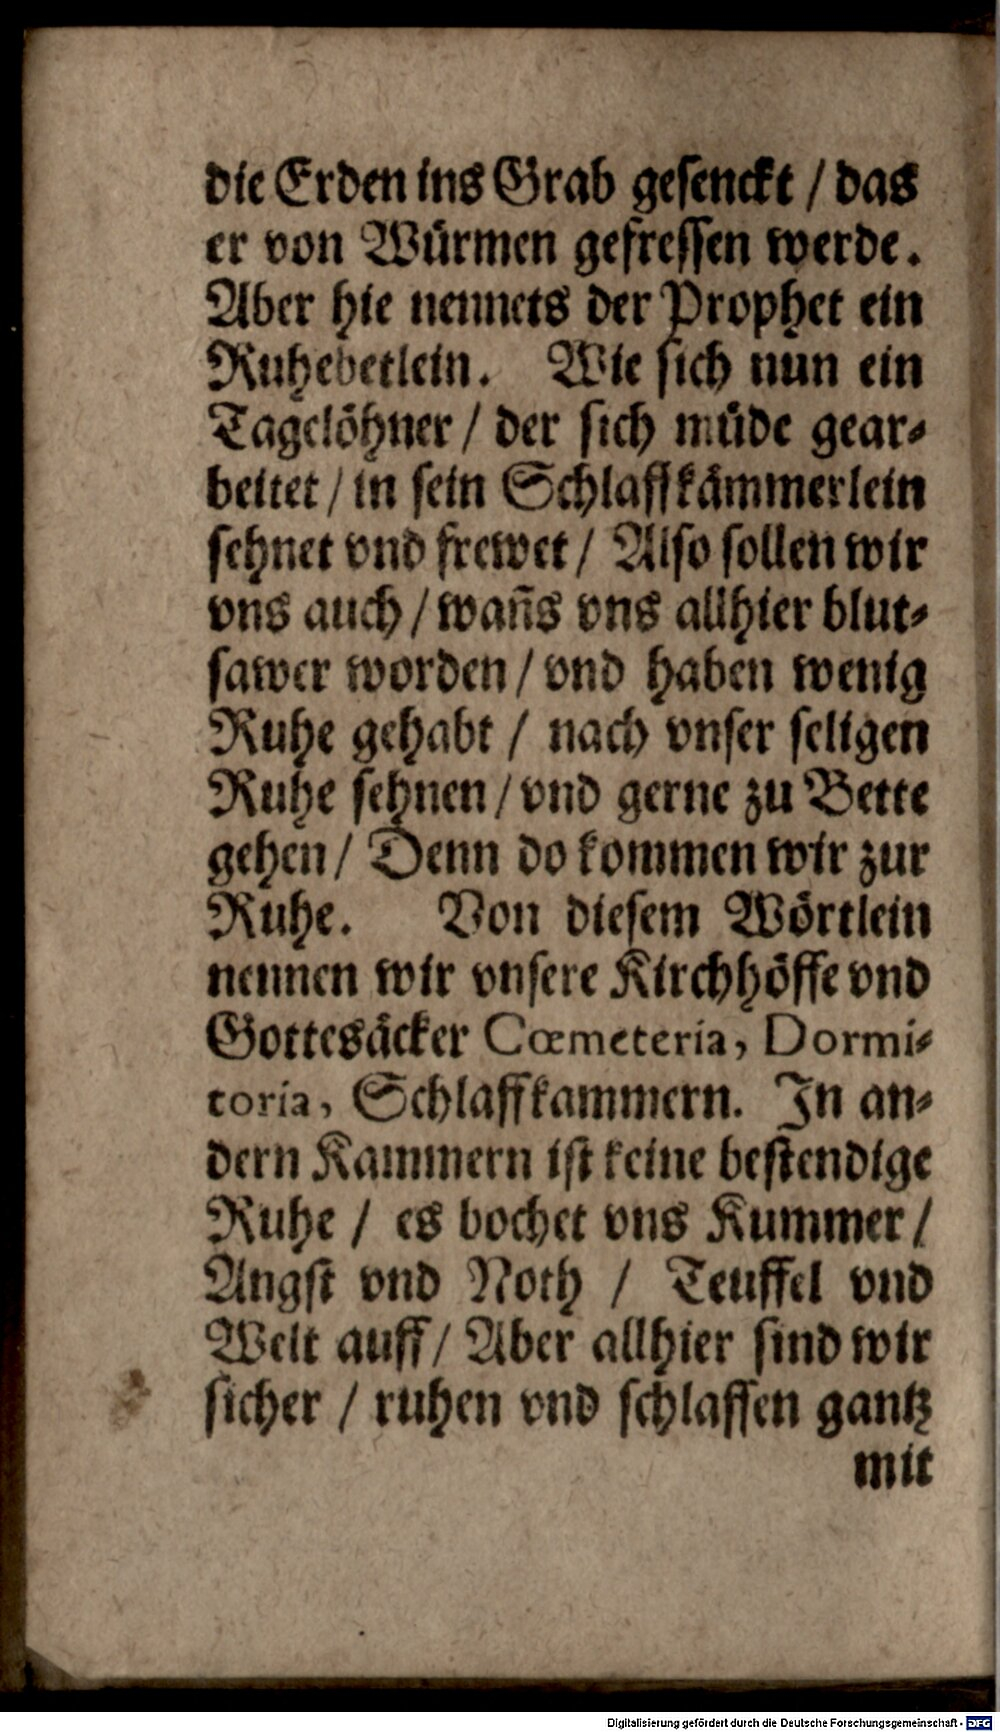 die Erden ins Grab gesenckt / das
er von Würmen gefressen werde.
Aber hie nennets der Prophet ein
Ruhebetlein. Wie sich nun ein
Tagelöhner / der sich müde gear-
beitet / in sein Schlaffkämmerlein
sehnet vnd frewet / Also sollen wir
vns auch / wañs vns allhier blut-
sawer worden / vnd haben wenig
Ruhe gehabt / nach vnser seligen
Ruhe sehnen / vnd gerne zu Bette
gehen / Denn do kommen wir zur
Ruhe. Von diesem Wörtlein
nennen wir vnsere Kirchhöffe vnd
Gottesäcker Cœmeteria, Dormi-
toria, Schlaffkammern. In an-
dern Kammern ist keine bestendige
Ruhe / es bochet vns Kummer /
Angst vnd Noth / Teuffel vnd
Welt auff / Aber allhier sind wir
sicher / ruhen vnd schlaffen gantz
mit
Digitalisierung gefördert durch die Deutsche Forschungsgemeinschaft - DFG